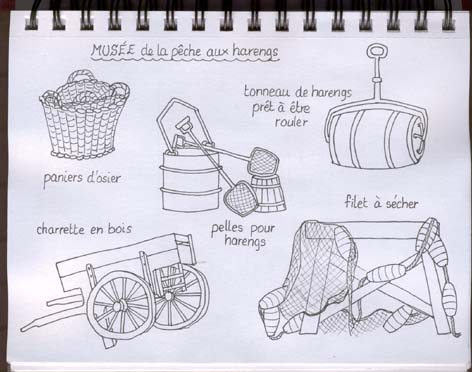 MUSÉE de la pêche aux harengs
tonneau de harengs
prêt à être
rouler
paniers d'osier
pelles pour
harengs
filet à sécher
charrette en bois